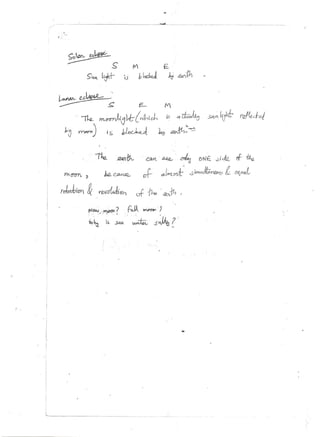 Solar eclipse
S M E
Sun light is blocked by earth.
Lunar eclipse
S E M
The moonlight (which is actually sunlight reflected
by moon) is blocked by earth.
The earth can see only ONE side of the
moon, because of almost simultaneous & equal
rotation & revolution of the earth.
New moon? Full moon?
Why is sea water salty?